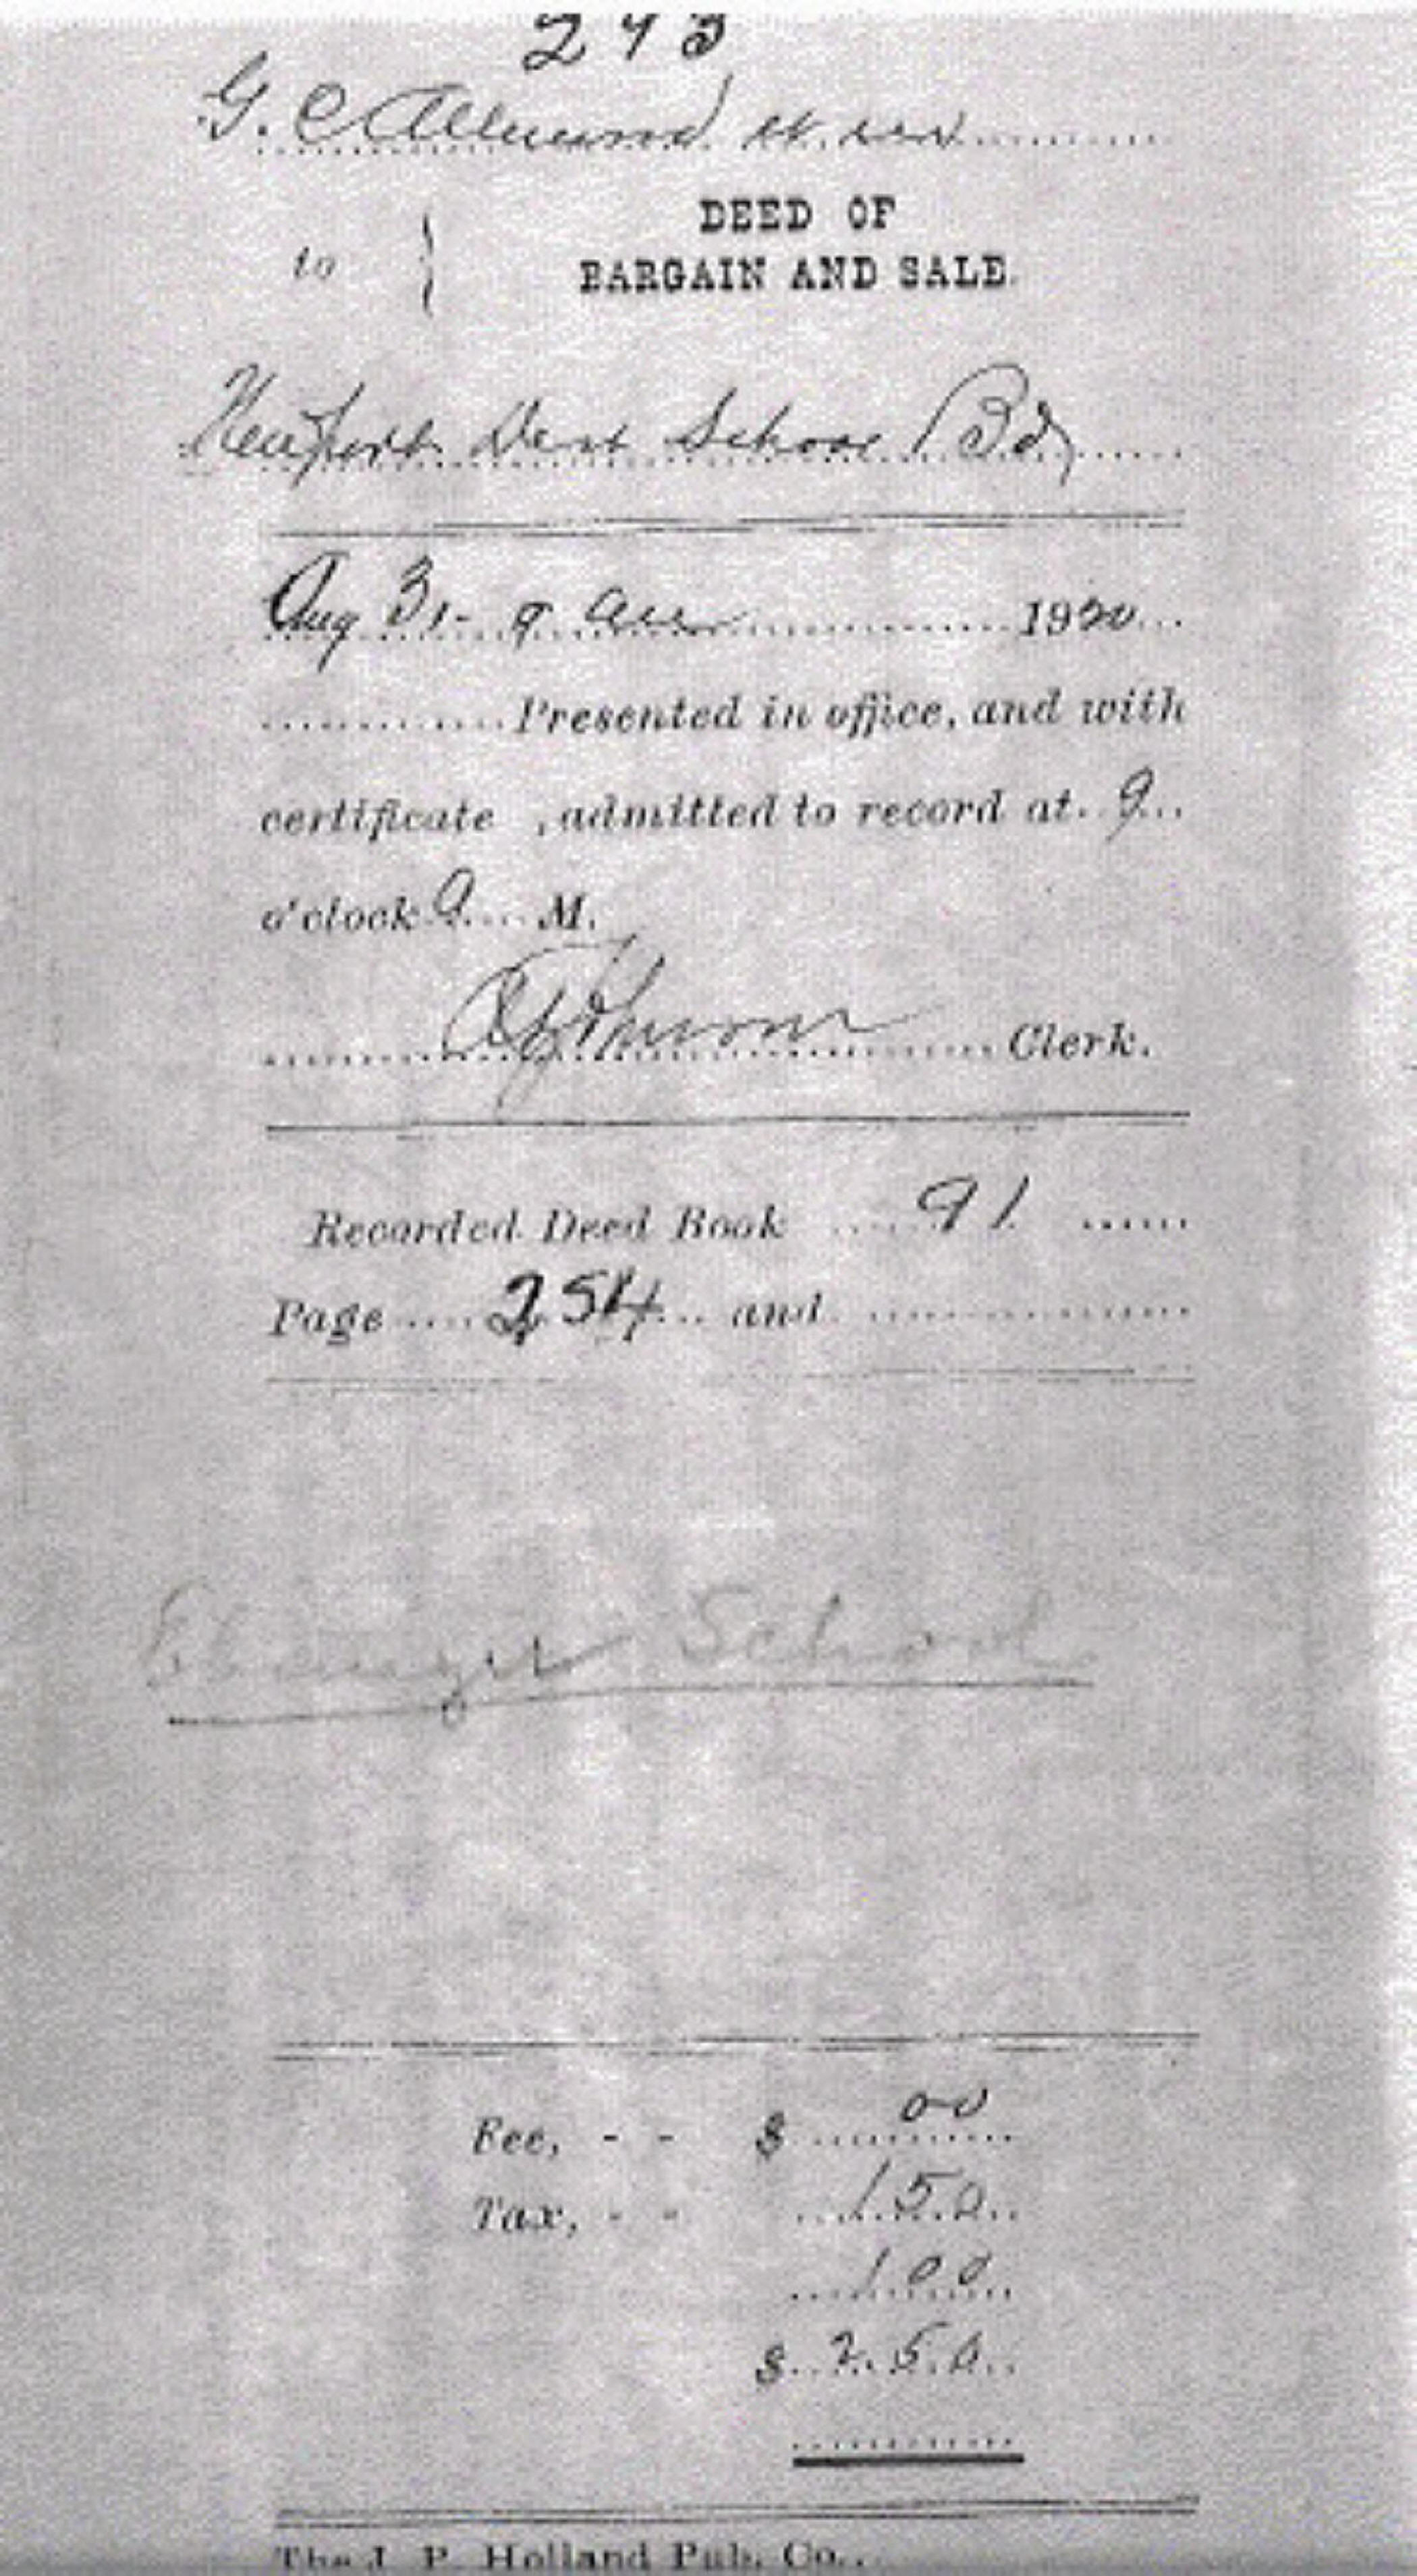 243
G. C. Allmond et ux
DEED OF
to
BARGAIN AND SALE
Newport Dist School Bd
Aug 31 - 9 am 1920
Presented in office, and with
certificate , admitted to record at 9
o'clock a M.
Clerk.
Recorded Deed Book 91
Page 254 and
Ebenezer School
Fee, - - $ 00
Tax, - - 150
100
$ 250
The J. P. Holland Pub. Co.,